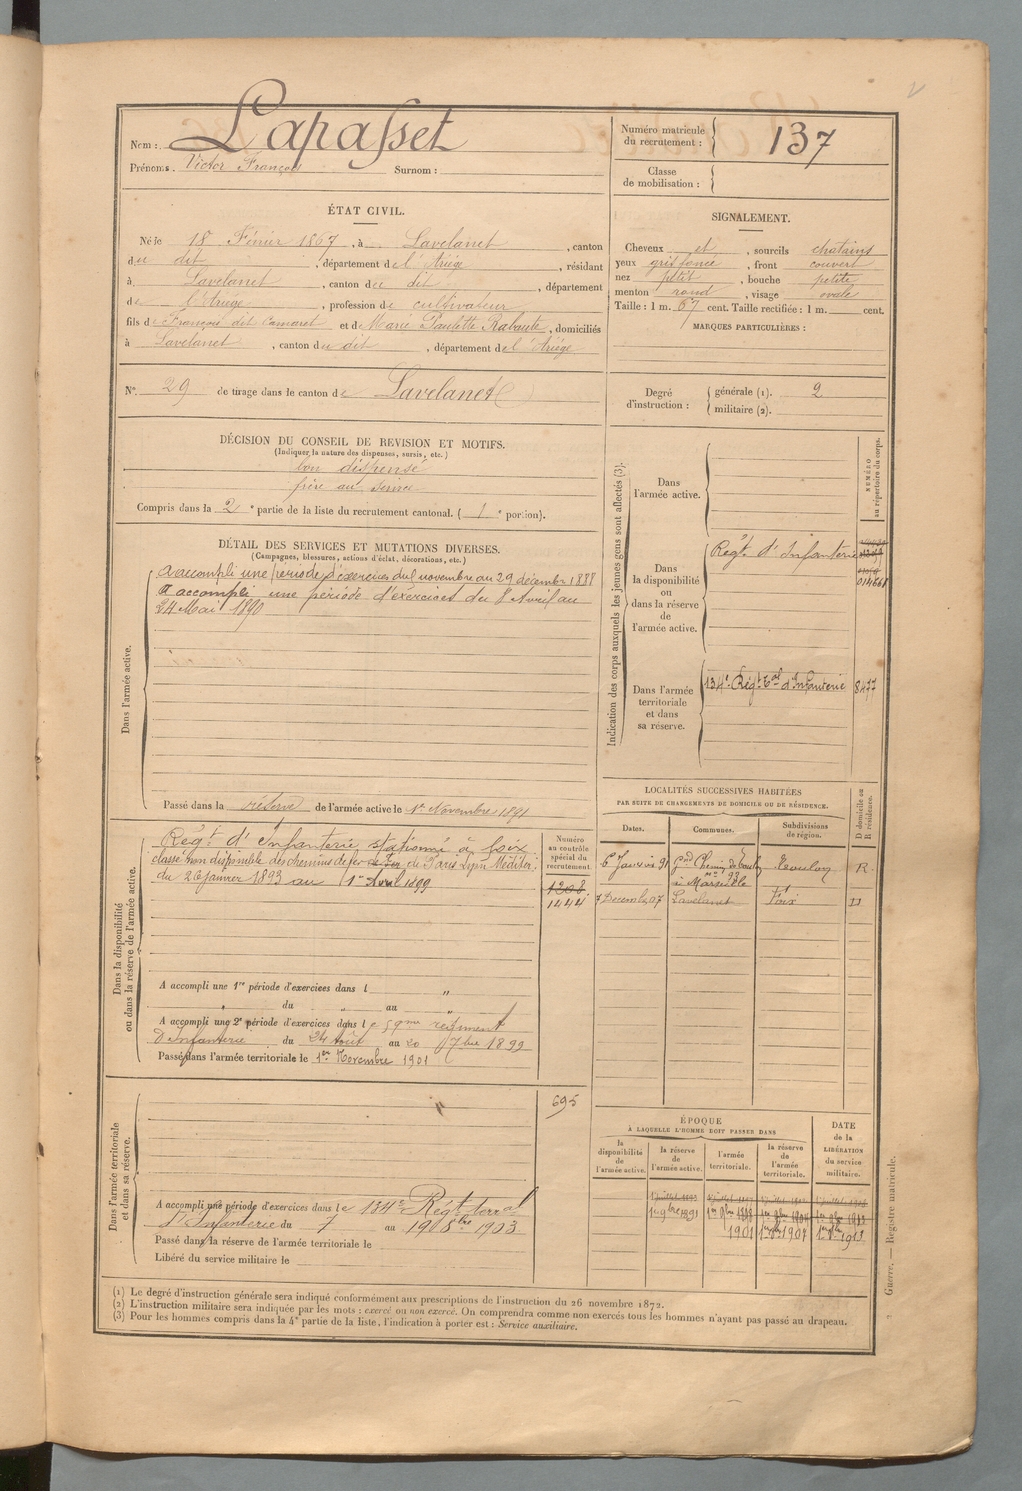 Nom : Lapasset
Prénoms : Victor François Surnom :
Numéro matricule du recrutement : 137
Classe de mobilisation :
ÉTAT CIVIL.
Né le 18 Février 1867, à Lavelanet, canton
du dit, département de l'Ariège, résidant
à Lavelanet, canton du dit, département
de l'Ariège, profession de cultivateur
fils de François dit Camaret et de Marie Paulette Rabaute, domiciliés
à Lavelanet, canton du dit, département de l'Ariège
N° 29 de tirage dans le canton de Lavelanet
SIGNALEMENT.
Cheveux et, sourcils chatains
yeux gris foncé, front couvert
nez petit, bouche petite
menton rond, visage ovale
Taille : 1 m. 67 cent. Taille rectifiée : 1 m. cent.
MARQUES PARTICULIÈRES :
Degré d'instruction : générale (1). 2
militaire (2).
DÉCISION DU CONSEIL DE REVISION ET MOTIFS.
(Indiquer la nature des dispenses, sursis, etc.)
bon dispensé
frère au service
Compris dans la 2e partie de la liste du recrutement cantonal. (1e portion).
DÉTAIL DES SERVICES ET MUTATIONS DIVERSES.
(Campagnes, blessures, actions d'éclat, décorations, etc.)
Dans l'armée active.
A accompli une période d'exercices du 1 novembre au 29 décembre 1888
A accompli une période d'exercices du 8 Avril au
24 Mai 1890
Passé dans la réserve de l'armée active le 1er Novembre 1891
Indication des corps auxquels les jeunes gens sont affectés (3).
NUMÉRO au répertoire du corps.
Dans l'armée active.
Dans la disponibilité ou dans la réserve de l'armée active.
Régt d'Infanterie
Dans l'armée territoriale et dans sa réserve.
134e Régt Tal d'Infanterie 8477
Dans la disponibilité ou dans la réserve de l'armée active.
Régt d'Infanterie stationné à Foix
classé non disponible des chemins de fer de Paris Lyon Méditer.
du 26 janvier 1893 au 1er Avril 1899
Numéro au contrôle spécial du recrutement.
1208
1444
A accompli une 1re période d'exercices dans l "
du " au "
A accompli une 2e période d'exercices dans le 59me régiment
D'Infanterie du 24 Août au 20 7bre 1899
Passé dans l'armée territoriale le 1er Novembre 1901
LOCALITÉS SUCCESSIVES HABITÉES
PAR SUITE DE CHANGEMENTS DE DOMICILE OU DE RÉSIDENCE.
Dates. Communes. Subdivisions de région. D domicile ou R résidence.
6 Janvier 91 Gnd Chemin de Toulon 93 à Marseille Toulon R.
7 Décemb. 07 Lavelanet Foix D
Dans l'armée territoriale et dans sa réserve.
695
A accompli une période d'exercices dans le 134e Régt terral
d'Infanterie du 7 au 19 8bre 1903
Passé dans la réserve de l'armée territoriale le
Libéré du service militaire le
ÉPOQUE
À LAQUELLE L'HOMME DOIT PASSER DANS
la disponibilité de l'armée active.
la réserve de l'armée active.
l'armée territoriale.
la réserve de l'armée territoriale.
DATE de la LIBÉRATION du service militaire.
1er 9bre 1891 1er 9bre 1898
1901 1er 9bre 1907 1er 9bre 1913
(1) Le degré d'instruction générale sera indiqué conformément aux prescriptions de l'instruction du 26 novembre 1872.
(2) L'instruction militaire sera indiquée par les mots : exercé ou non exercé. On comprendra comme non exercés tous les hommes n'ayant pas passé au drapeau.
(3) Pour les hommes compris dans la 4e partie de la liste, l'indication à porter est : Service auxiliaire.
Guerre. — Registre matricule.